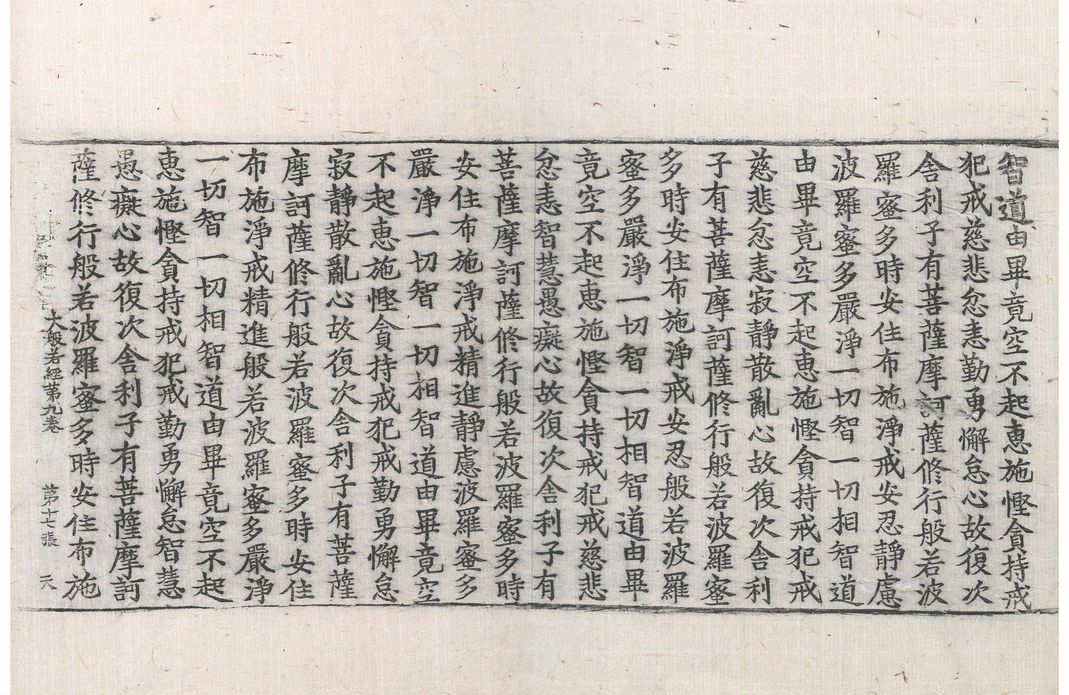 智道由畢竟空不起恵施慳貪持戒
犯戒慈悲忿恚勤勇懈怠心故復次
舎利子有菩薩摩訶薩修行般若波
羅蜜多時安住布施淨戒安忍靜慮
波羅蜜多嚴淨一切智一切相智道
由畢竟空不起恵施慳貪持戒犯戒
慈悲忿恚寂靜散亂心故復次舎利
子有菩薩摩訶薩修行般若波羅蜜
多時安住布施淨戒安忍般若波羅
蜜多嚴淨一切智一切相智道由畢
竟空不起恵施慳貪持戒犯戒慈悲
忿恚智慧愚癡心故復次舎利子有
菩薩摩訶薩修行般若波羅蜜多時
安住布施淨戒精進靜慮波羅蜜多
嚴淨一切智一切相智道由畢竟空
不起恵施慳貪持戒犯戒勤勇懈怠
寂靜散亂心故復次舎利子有菩薩
摩訶薩修行般若波羅蜜多時安住
布施淨戒精進般若波羅蜜多嚴淨
一切智一切相智道由畢竟空不起
恵施慳貪持戒犯戒勤勇懈怠智慧
愚癡心故復次舎利子有菩薩摩訶
薩修行般若波羅蜜多時安住布施
大般若經第九卷 第十七張